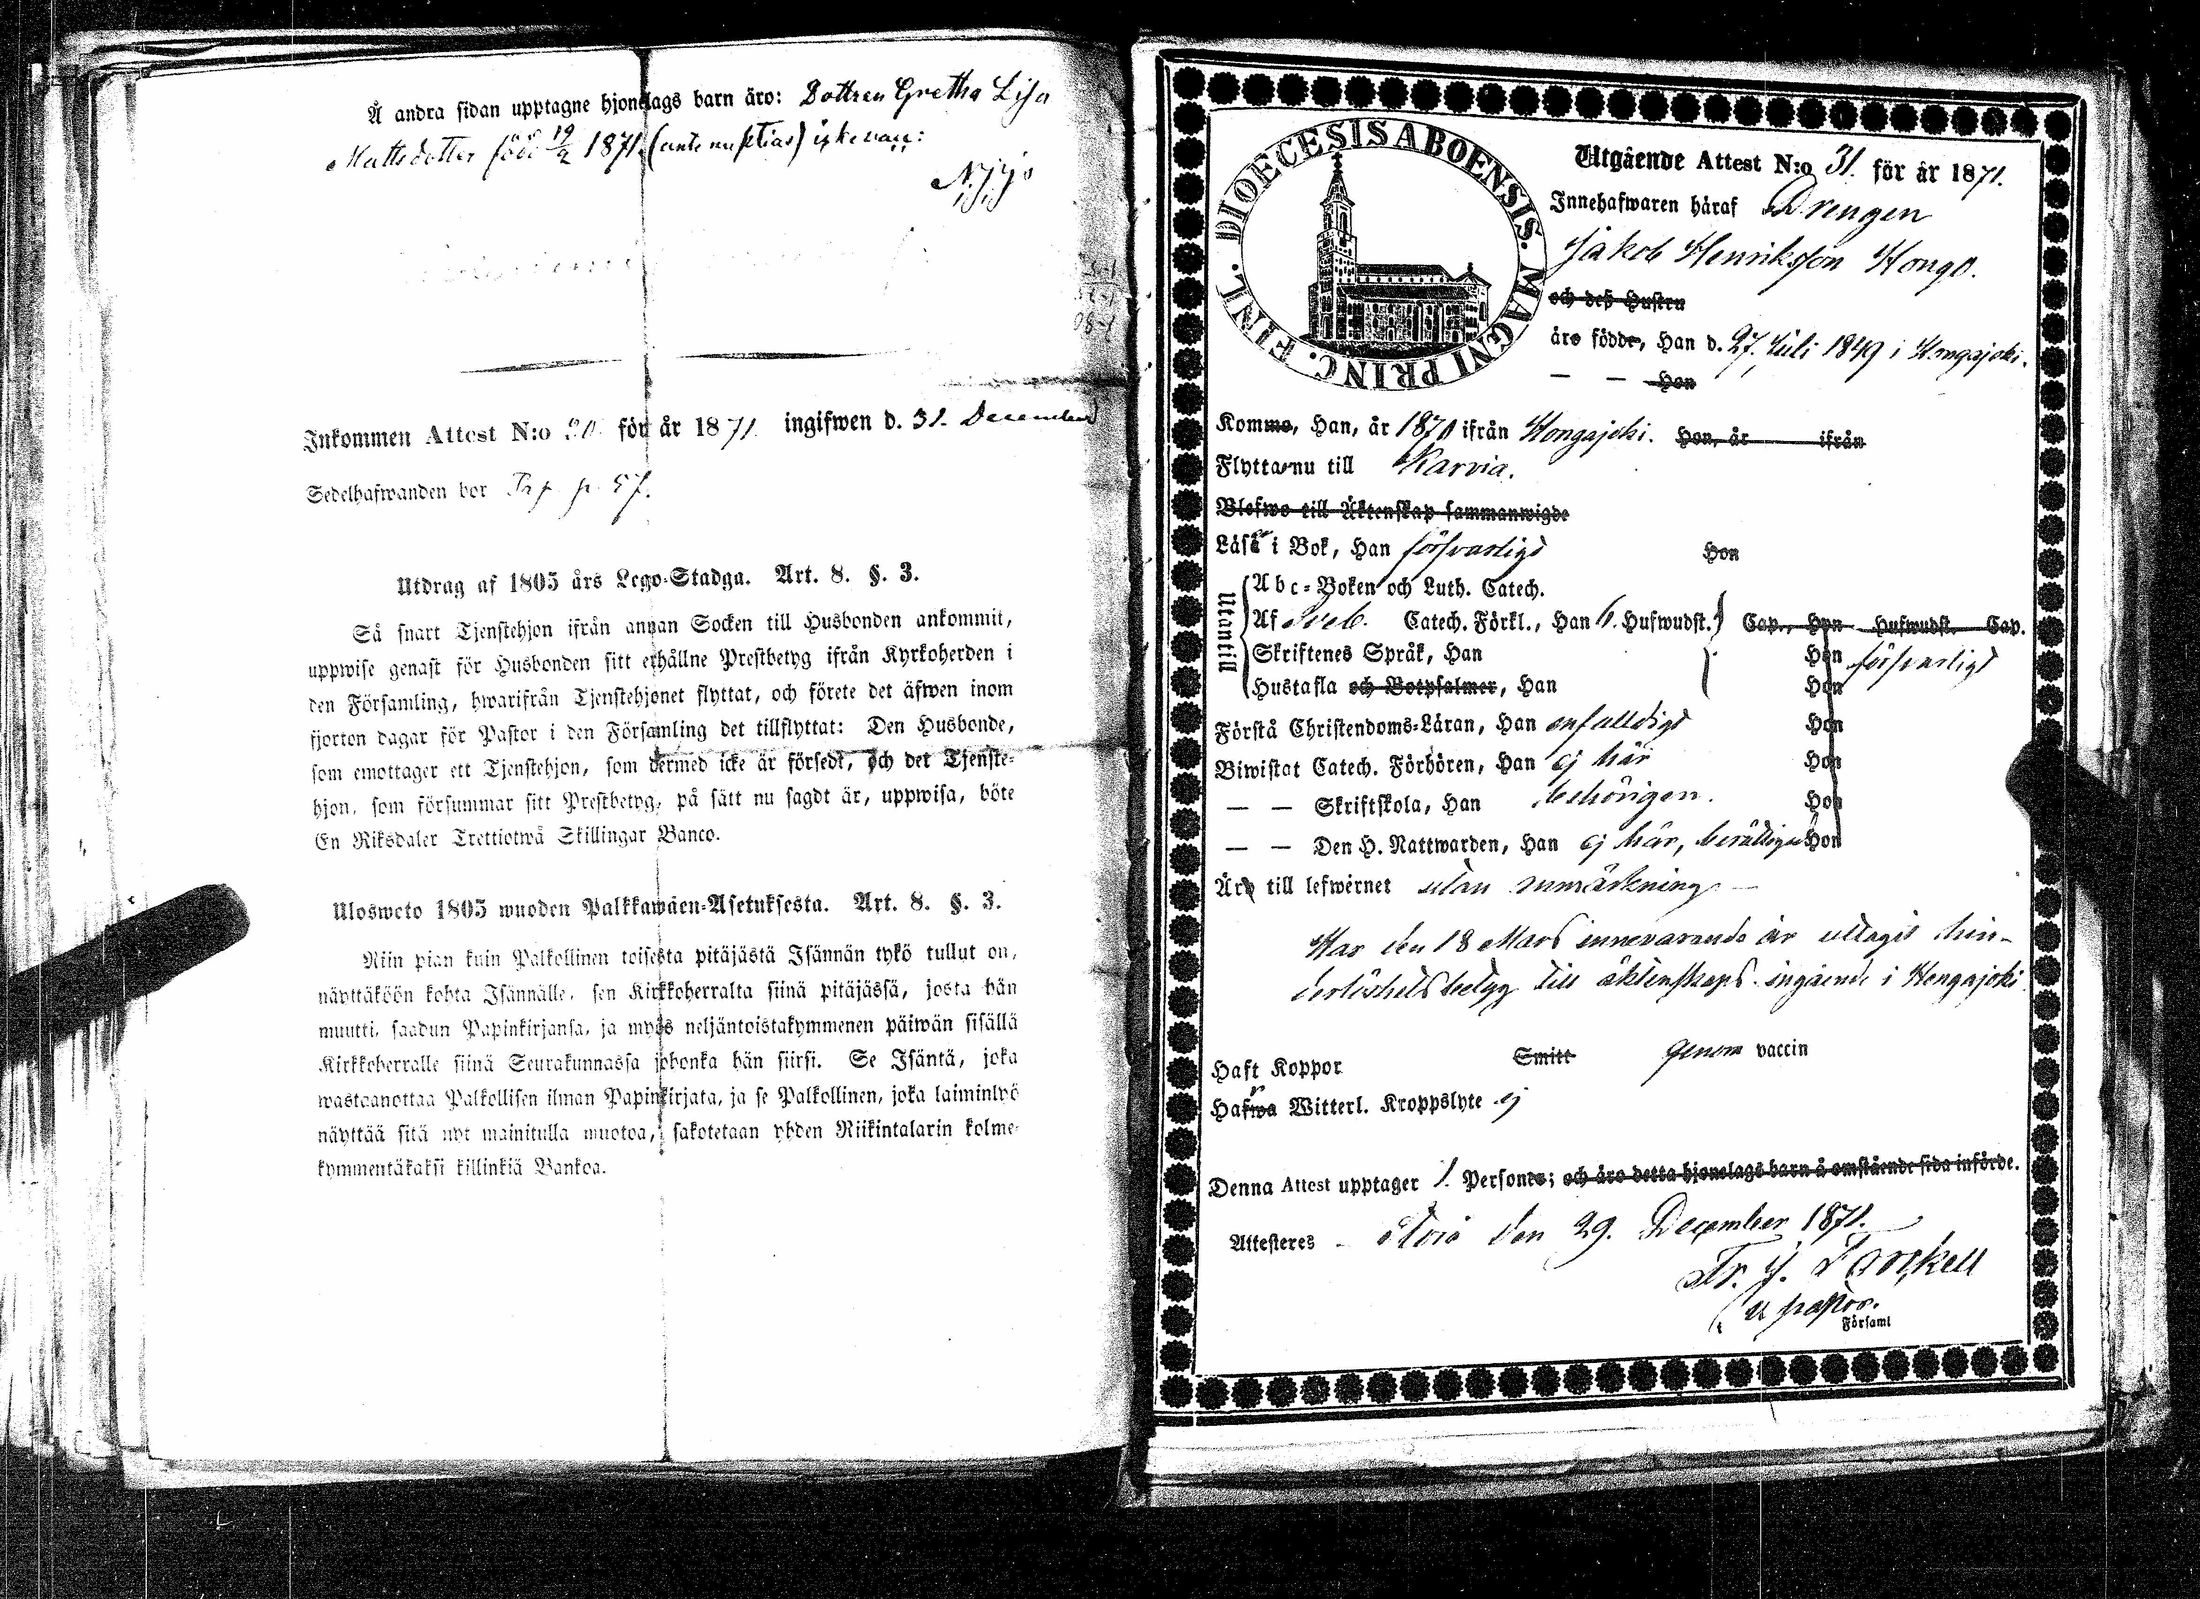 Å andra sidan upptagne hjonelags barn äro: Dottren Gretha Lisa
Mattsdotter född 19/2 1871 (ante nuptias)
Inkommen Attest N:o 30 för år 1871 ingifwen d. 31. December
Sedelhafwanden bor p. 57.
Utdrag af 1805 års Lego-Stadga. Art. 8. §. 3.
Så snart Tjenstehjon ifrån annan Socken till Husbonden ankommit,
uppwise genast för Husbonden sitt erhållne Prestbetyg ifrån Kyrkoherden i
den Församling, hwarifrån Tjenstehjonet flyttat, och förete det äfwen inom
fjorton dagar för Pastor i den Församling det tillflyttat: Den Husbonde,
som emottager ett Tjenstehjon, som dermed icke är försedt, och det Tjenste-
hjon, som försummar sitt Prestbetyg, på sätt nu sagdt är, uppwisa, böte
En Riksdaler Trettiotwå Skillingar Banco.
Ulosweto 1805 wuoden Palkkawäen-Asetuksesta. Art. 8. §. 3.
Niin pian kuin Palkollinen toisesta pitäjästä Isännän tykö tullut on,
näyttäköön kohta Isännälle, sen Kirkkoherralta siinä pitäjässä, josta hän
muutti, saadun Papinkirjansa, ja myös neljäntoistakymmenen päiwän sisällä
Kirkkoherralle siinä Seurakunnassa johonka hän siirsi. Se Isäntä, joka
wastaanottaa Palkollisen ilman Papinkirjata, ja se Palkollinen, joka laiminlyö
näyttää sitä nyt mainitulla muotoa, sakotetaan yhden Riikintalarin kolme-
kymmentäkaksi killinkiä Bankoa.
DIOECESIS ABOENSIS. MAGNI PRINC. FINL.
Utgående Attest N:o 31. för år 1871.
Innehafwaren häraf Drengen
Jakob Henriksson Hongo.
och deß Hustru
äro födde, Han d. 27. Juli 1849 i Hongojoki.
— — Hon
Komme, Han, år 1870 ifrån Hongojoki. Hon, år ifrån
Flytta nu till Karvia.
Blefwo till Äktenskap sammanwigde
Läsa i Bok, Han försvarligt Hon
Utantill
Abc-Boken och Luth. Catech.
Af Sveb. Catech. Förkl., Han 6. Hufwudst. Cap., Hon Hufwudst. Cap.
Skriftenes Språk, Han Hon försvarligt
Hustafla och Botpsalmer, Han Hon
Förstå Christendoms-Läran, Han enfalldigt Hon
Biwistat Catech. Förhören, Han ej här Hon
— — Skriftskola, Han behörigen. Hon
— — Den H. Nattwarden, Han ej här, berättigad Hon
Äro till lefwernet utan anmärkning —
Har den 18 Mars innevarande år uttagit hin-
derlöshetsbetyg till äktenskaps ingående i Hongojoki
Haft Koppor Smitt genom vaccin
Hafwa Witterl. Kroppslyte ej
Denna Attest upptager 1. Persone; och äro detta hjonelags barn å omstående sida införde.
Attesteres Hvio den 29. December 1871.
Fr. J. Forskell
Församl